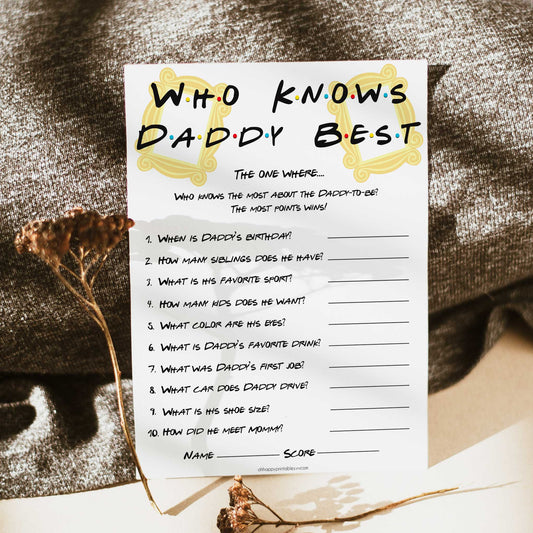 W·H·O K·N·O·W·S
D·A·D·D·Y B·E·S·T
THE ONE WHERE....
WHO KNOWS THE MOST ABOUT THE DADDY-TO-BE?
THE MOST POINTS WINS!
1. WHEN IS DADDY'S BIRTHDAY?
2. HOW MANY SIBLINGS DOES HE HAVE?
3. WHAT IS HIS FAVORITE SPORT?
4. HOW MANY KIDS DOES HE WANT?
5. WHAT COLOR ARE HIS EYES?
6. WHAT IS DADDY'S FAVORITE DRINK?
7. WHAT WAS DADDY'S FIRST JOB?
8. WHAT CAR DOES DADDY DRIVE?
9. WHAT IS HIS SHOE SIZE?
10. HOW DID HE MEET MOMMY?
NAME SCORE
ohhappyprintables.com